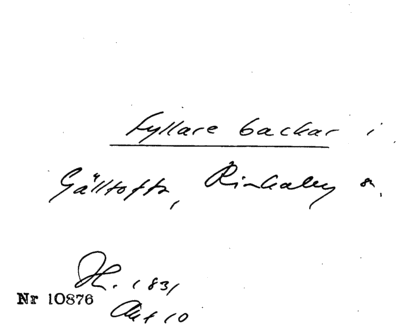 Fyllare backar i
Gälltofta, Rinkaby sn.
H. 1831
Akt 10
Nr 10876